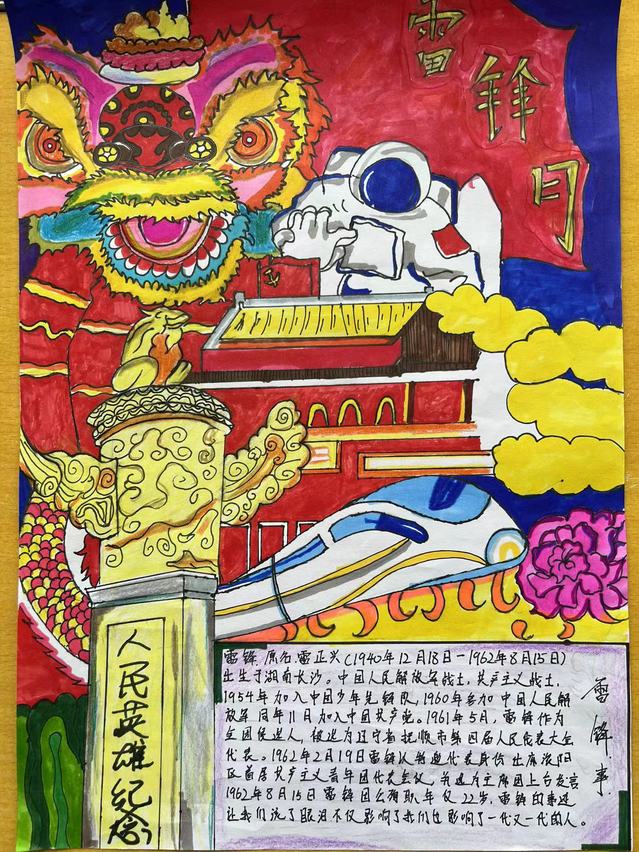 雷锋月
人民英雄纪念
雷锋 原名雷正兴(1940年12月18日-1962年8月15日)
出生于湖南长沙。中国人民解放军战士,共产主义战士,
1954年加入中国少年先锋队,1960年参加中国人民解
放军 同年11月加入中国共产党。1961年5月,雷锋作为
全团候选人,被选为辽宁省抚顺市第四届人民代表大会
代表。1962年2月19日雷锋以特邀代表身份出席沈阳
区首届共产主义青年团代表会议,并选为主席团上台发言
1962年8月15日雷锋因公殉职,年仅22岁,雷锋的事迹
让我们流了眼泪不仅影响了我们也影响了一代又一代的人。
雷锋事